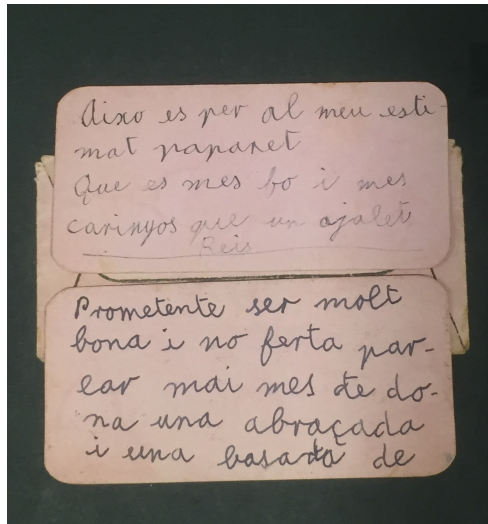 Aixo es per al meu esti-
mat paparet
Que es mes bo i mes
carinyos que un ojalet
Reis
Prometente ser molt
bona i no ferta par-
lar mai mes te do-
na una abraçada
i una basada de